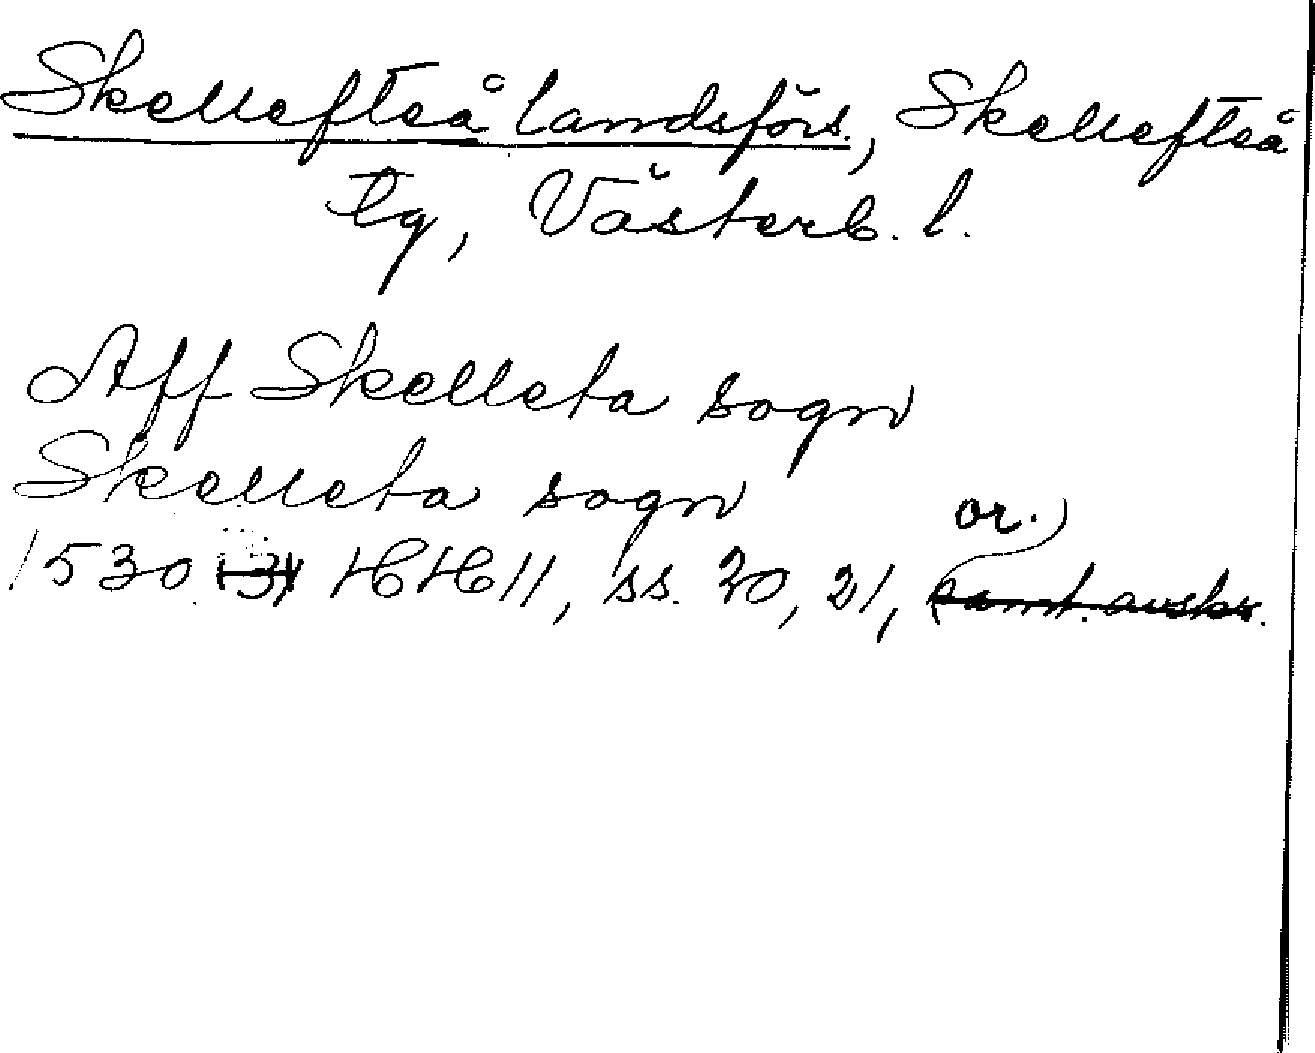 Skellefteå landsförs., Skellefteå
tg, Västerb. l.
Aff Skelleta sogn
Skelleta sogn
or.)
1530 HH 11, ss. 20, 21, (samt. avskr.